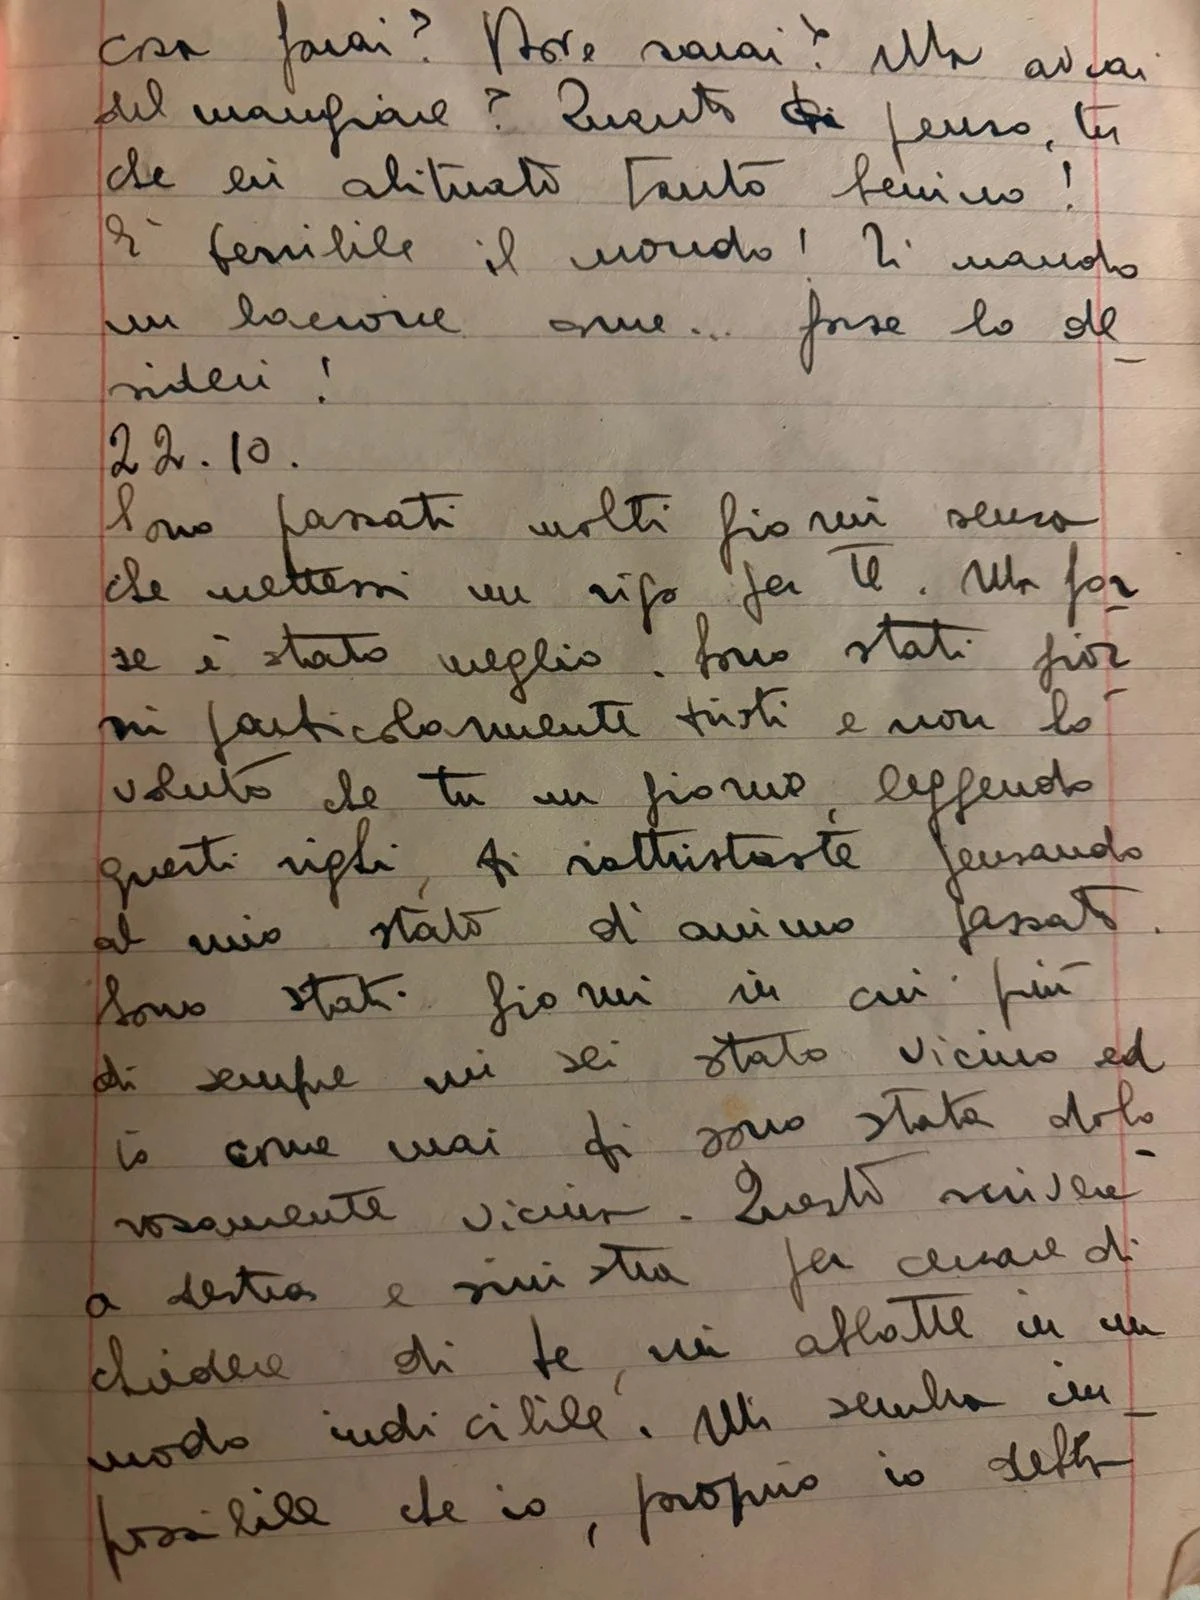 cosa farai? Dove sarai? Ma avrai
del mangiare? Quanto ti penso, tu
che eri abituato tanto benino!
È terribile il mondo! Ti mando
un bacione come... forse lo de_
sideri!
22.10.
Sono passati molti giorni senza
che mettessi un rigo per te. Ma for_
se è stato meglio. Sono stati gior_
ni particolarmente tristi e non ho
voluto che tu un giorno, leggendo
questi righi, ti rattristaste pensando
al mio stato d'animo passato.
Sono stati giorni in cui più
di sempre mi sei stato vicino ed
io come mai ti sono stata dolo_
rosamente vicina. Questo scrivere
a destra e sinistra per cercare di
chiedere di te, mi abbatte in un
modo indicibile. Mi sembra im_
possibile che io, proprio io debba